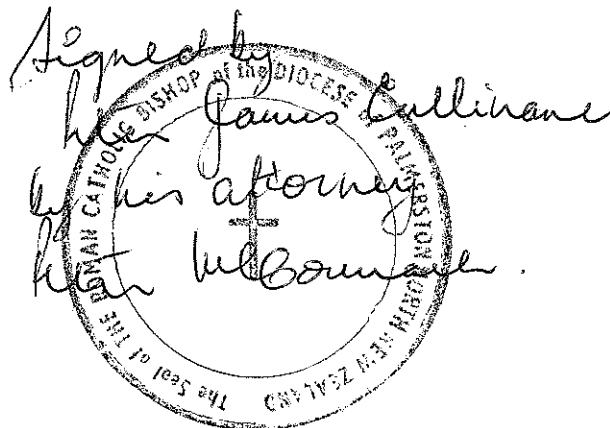 Signed by
Peter James Cullinane
by his attorney
Peter McCormack.
The Seal of THE ROMAN CATHOLIC BISHOP of the DIOCESE of PALMERSTON NORTH NEW ZEALAND